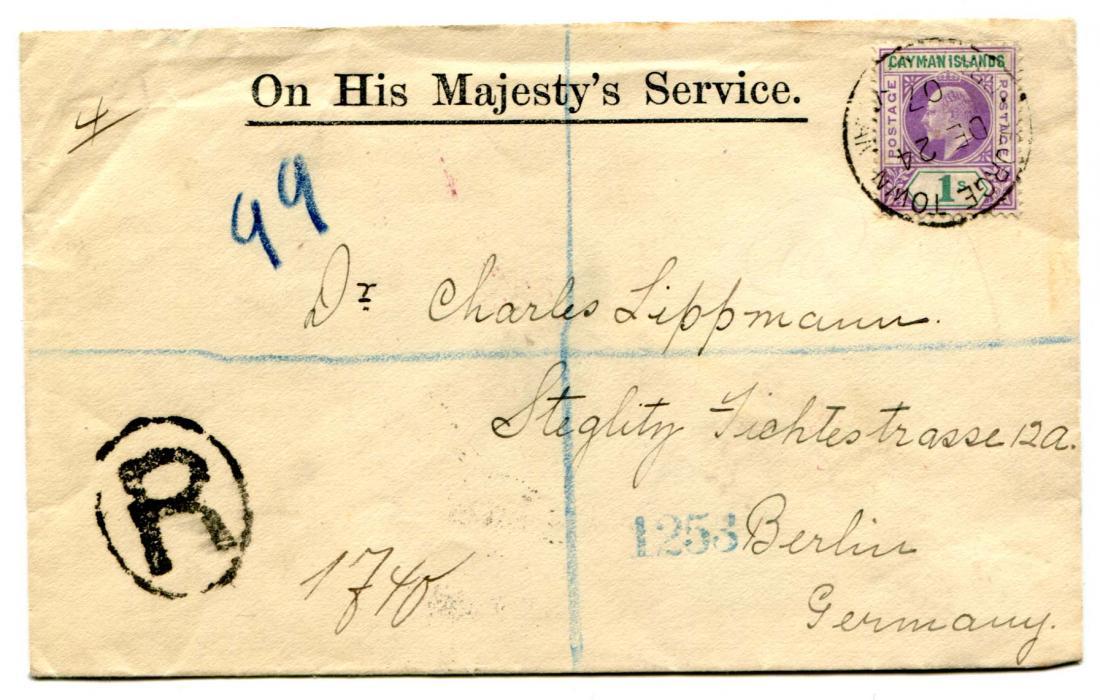 On His Majesty's Service.
CAYMAN ISLANDS
POSTAGE
POSTAGE
1s
TOWN
24
DE
07
4
99
Dr Charles Lippmann.
Steglitz Fichtestrasse 12a.
1253 Berlin
Germany.
R
1740